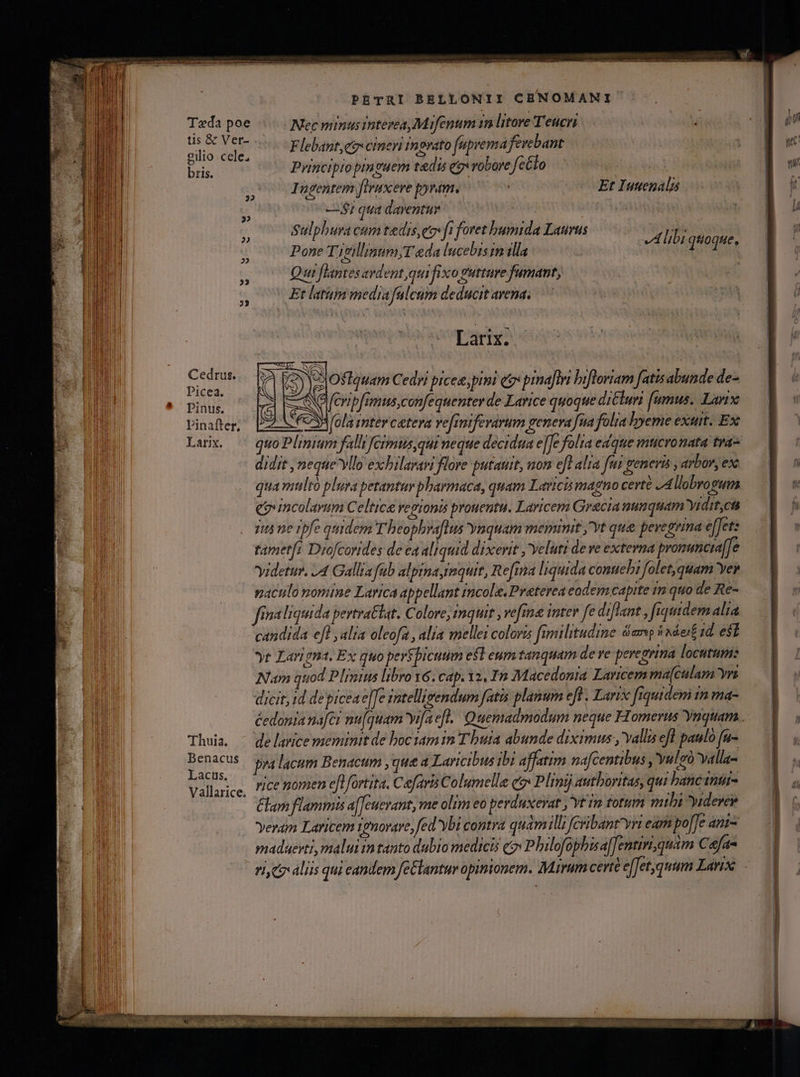 PETRI BELLONII CENOMANI
Tæda poe
tis & Ver-
gilio cele.
bris.
Nec minus interea, Misenum in litore Teucri
Flebant, & cineri ingrato suprema ferebant
Principio pinguem tædis & robore secto
Ingentem struxere pyram. Et Iuuenalis
—Si qua darentur
Sulphura cum tædis, & si foret humida Laurus
Pone Tigillinum, Tæda lucebis in illa Alibi quoque,
Qui stantes ardent, qui fixo gutture fumant,
Et latum media sulcum deducit arena.
Larix.
Cedrus.
Picea.
* Pinus.
Pinaster,
Larix.
POstquam Cedri piceæ, pini & pinastri historiam satis abunde de-
scripsimus, consequenter de Larice quoque dicturi sumus. Larix
sola inter cætera resiniferarum genera sua folia hyeme exuit. Ex
quo Plinium falli scimus, qui neque decidua esse folia eáque mucronata tra-
didit, neque vllo exhilarari flore putauit, non est alia sui generis, arbor, ex
qua multò plura petantur pharmaca, quam Laricis magno certè Allobrogum
& incolarum Celticæ regionis prouentu. Laricem Græcia nunquam vidit, cu
ius ne ipse quidem Theophrastus vnquam meminit, vt quæ peregrina esset:
tametsi Dioscorides de ea aliquid dixerit, veluti de re externa pronunciasse
videtur. A Gallia sub alpina, inquit, Resina liquida conuehi solet, quam ver
naculo nomine Larica appellant incolæ. Præterea eodem capite in quo de Re-
sina liquida pertractat. Colore, inquit, resinæ inter se distant, siquidem alia
candida est, alia oleosa, alia mellei coloris similitudine id est
vt Larigna. Ex quo perspicuum est eum tanquam de re peregrina locutum:
Nam quod Plinius libro 16. cap. 12, In Macedonia Laricem masculam vri
dicit, id de picea esse intelligendum satis planum est. Larix siquidem in ma-
cedonia nasci nusquam visa est. Quemadmodum neque Homerus vnquam
Thuia.
Benacus
Lacus.
Vallarice.
de larice meminit de hoc iam in Thuia abunde diximus, vallis est paulò su-
pra lacum Benacum, quæ a Laricibus ibi affatim nascentibus, vulgò valla-
rice nomen est sortita. Cæsaris Columellæ & Plinij authoritas, qui hanc inui-
ctam flammis asseuerant, me olim eo perduxerat, vt in totum mihi viderer
veram Laricem ignorare, sed vbi contra quàm illi scribant vri eam posse ani-
maduerti, malui in tanto dubio medicis & Philosophis assentiri, quàm Cæsa-
ri, & aliis qui eandem sectantur opinionem. Mirum certè esset, quum Larix